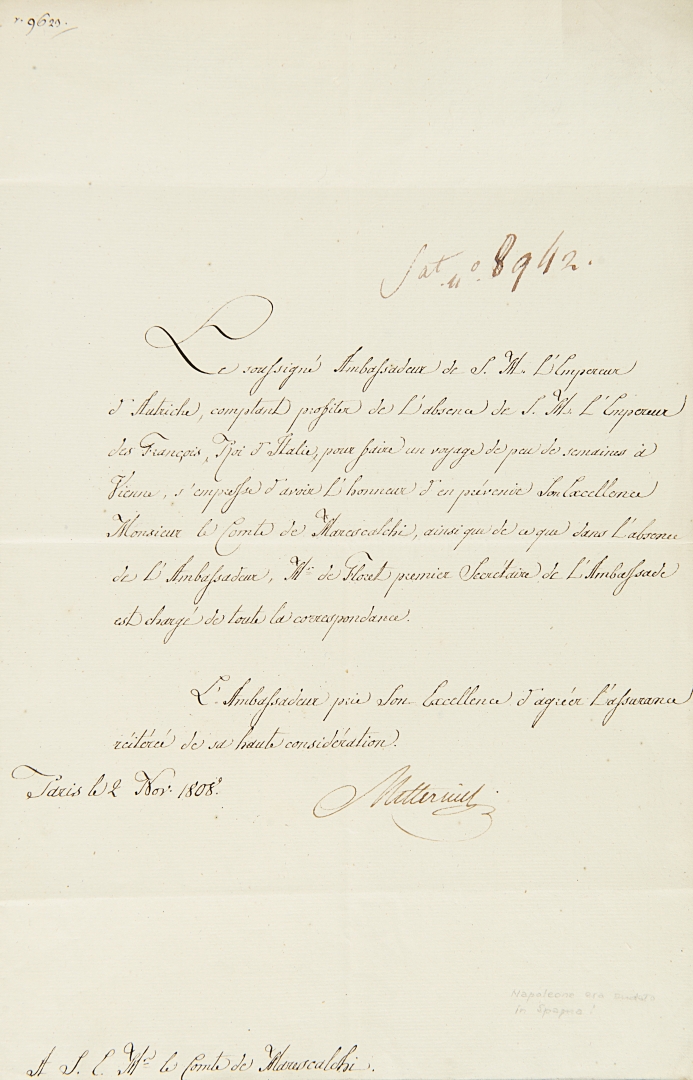 r. 9629.
Fat. n.° 8942.
Le soussigné Ambassadeur de S. M. L'Empereur
d'Autriche, comptant profiter de L'absence de S. M. L'Empereur
des François, Roi d'Italie, pour faire un voyage de peu de semaines à
Vienne, s'empresse d'avoir L'honneur d'en prévenir Son Excellence
Monsieur le Comte de Marescalchi, ainsi que de ce que dans L'absence
de L'Ambassadeur, Mr. de Floret premier Secrétaire de L'Ambassade
est chargé de toute la correspondance.
L'Ambassadeur prie Son Excellence d'agréer L'assurance
réitérée de sa haute considération.
Paris le 2 Nov. 1808.
Metternich
Napoleone era andato
in Spagna
A S. E. Mr. le Comte de Marescalchi.